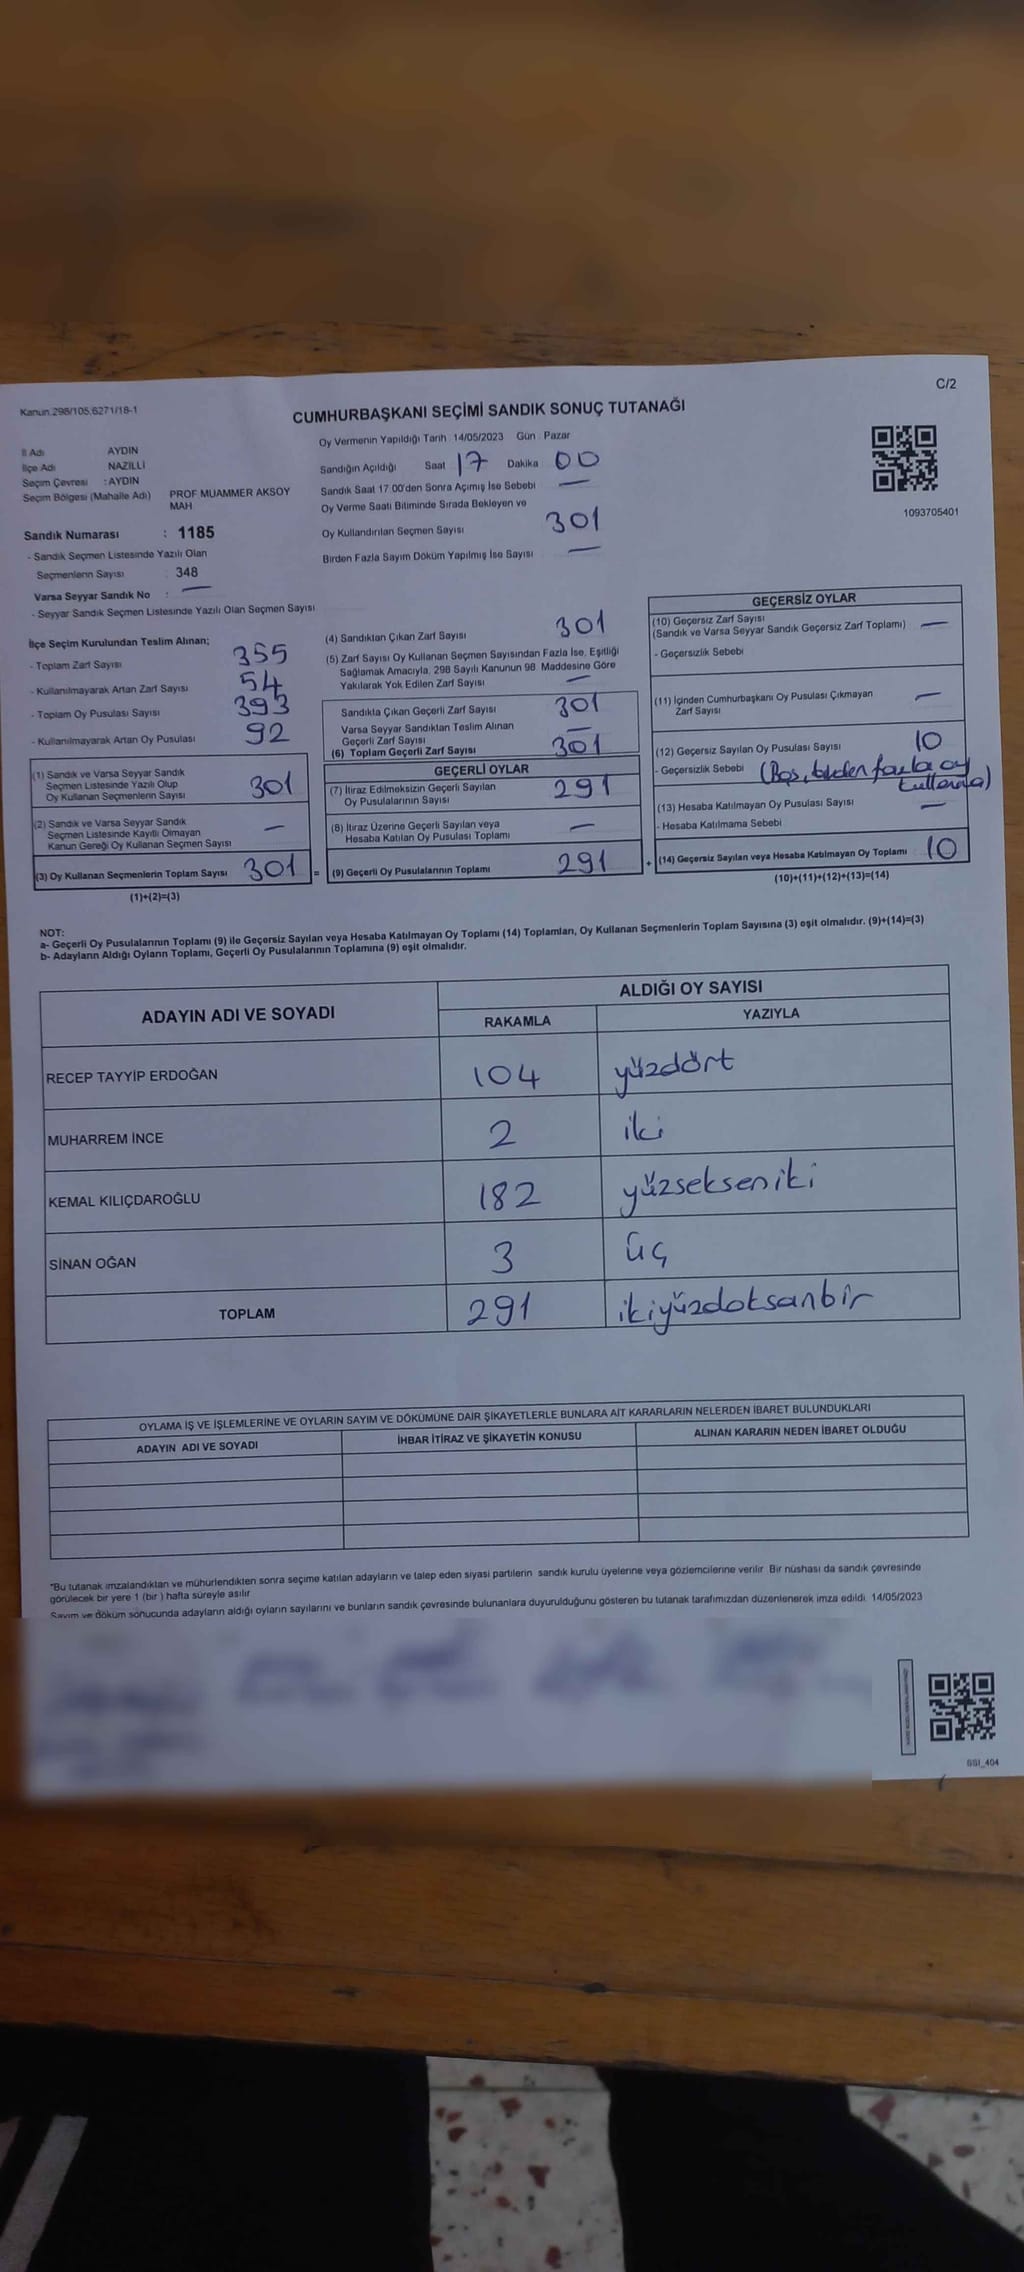 Kanun.298/105,6271/18-1
C/2
CUMHURBAŞKANI SEÇİMİ SANDIK SONUÇ TUTANAĞI
İl Adı AYDIN
İlçe Adı NAZİLLİ
Seçim Çevresi : AYDIN
Seçim Bölgesi (Mahalle Adı) PROF MUAMMER AKSOY
MAH
Sandık Numarası : 1185
- Sandık Seçmen Listesinde Yazılı Olan
Seçmenlerin Sayısı 348
Varsa Seyyar Sandık No : —
- Seyyar Sandık Seçmen Listesinde Yazılı Olan Seçmen Sayısı
Oy Vermenin Yapıldığı Tarih 14/05/2023 Gün : Pazar
Sandığın Açıldığı Saat 17 Dakika 00
Sandık Saat 17.00'den Sonra Açımış İse Sebebi —
Oy Verme Saati Bitiminde Sırada Bekleyen ve
Oy Kullandırılan Seçmen Sayısı 301
Birden Fazla Sayım Döküm Yapılmış İse Sayısı —
1093705401
İlçe Seçim Kurulundan Teslim Alınan;
- Toplam Zarf Sayısı 355
- Kullanılmayarak Artan Zarf Sayısı 54
- Toplam Oy Pusulası Sayısı 393
- Kullanılmayarak Artan Oy Pusulası 92
(1) Sandık ve Varsa Seyyar Sandık
Seçmen Listesinde Yazılı Olup
Oy Kullanan Seçmenlerin Sayısı 301
(2) Sandık ve Varsa Seyyar Sandık
Seçmen Listesinde Kayıtlı Olmayan
Kanun Gereği Oy Kullanan Seçmen Sayısı —
(3) Oy Kullanan Seçmenlerin Toplam Sayısı 301 =
(1)+(2)=(3)
(4) Sandıktan Çıkan Zarf Sayısı 301
(5) Zarf Sayısı Oy Kullanan Seçmen Sayısından Fazla İse, Eşitliği
Sağlamak Amacıyla, 298 Sayılı Kanunun 98. Maddesine Göre
Yakılarak Yok Edilen Zarf Sayısı —
Sandıkta Çıkan Geçerli Zarf Sayısı 301
Varsa Seyyar Sandıktan Teslim Alınan
Geçerli Zarf Sayısı —
(6) Toplam Geçerli Zarf Sayısı 301
GEÇERLİ OYLAR
(7) İtiraz Edilmeksizin Geçerli Sayılan
Oy Pusulalarının Sayısı 291
(8) İtiraz Üzerine Geçerli Sayılan veya
Hesaba Katılan Oy Pusulası Toplamı —
(9) Geçerli Oy Pusulalarının Toplamı 291 +
GEÇERSİZ OYLAR
(10) Geçersiz Zarf Sayısı
(Sandık ve Varsa Seyyar Sandık Geçersiz Zarf Toplamı) —
- Geçersizlik Sebebi
(11) İçinden Cumhurbaşkanı Oy Pusulası Çıkmayan
Zarf Sayısı —
(12) Geçersiz Sayılan Oy Pusulası Sayısı 10
- Geçersizlik Sebebi (Boş, birden fazla oy
kullanma)
(13) Hesaba Katılmayan Oy Pusulası Sayısı —
- Hesaba Katılmama Sebebi
(14) Geçersiz Sayılan veya Hesaba Katılmayan Oy Toplamı 10
(10)+(11)+(12)+(13)=(14)
NOT:
a- Geçerli Oy Pusulalarının Toplamı (9) ile Geçersiz Sayılan veya Hesaba Katılmayan Oy Toplamı (14) Toplamları, Oy Kullanan Seçmenlerin Toplam Sayısına (3) eşit olmalıdır. (9)+(14)=(3)
b- Adayların Aldığı Oyların Toplamı, Geçerli Oy Pusulalarının Toplamına (9) eşit olmalıdır.
ADAYIN ADI VE SOYADI
ALDIĞI OY SAYISI
RAKAMLA YAZIYLA
RECEP TAYYİP ERDOĞAN 104 yüzdört
MUHARREM İNCE 2 iki
KEMAL KILIÇDAROĞLU 182 yüzsekseniki
SİNAN OĞAN 3 üç
TOPLAM 291 ikiyüzdoksanbir
OYLAMA İŞ VE İŞLEMLERİNE VE OYLARIN SAYIM VE DÖKÜMÜNE DAİR ŞİKAYETLERLE BUNLARA AİT KARARLARIN NELERDEN İBARET BULUNDUKLARI
ADAYIN ADI VE SOYADI İHBAR İTİRAZ VE ŞİKAYETİN KONUSU ALINAN KARARIN NEDEN İBARET OLDUĞU
*Bu tutanak imzalandıktan ve mühürlendikten sonra seçime katılan adayların ve talep eden siyasi partilerin sandık kurulu üyelerine veya gözlemcilerine verilir. Bir nüshası da sandık çevresinde
görülecek bir yere 1 (bir) hafta süreyle asılır.
Sayım ve döküm sonucunda adayların aldığı oyların sayılarını ve bunların sandık çevresinde bulunanlara duyurulduğunu gösteren bu tutanak tarafımızdan düzenlenerek imza edildi. 14/05/2023
SSI_404